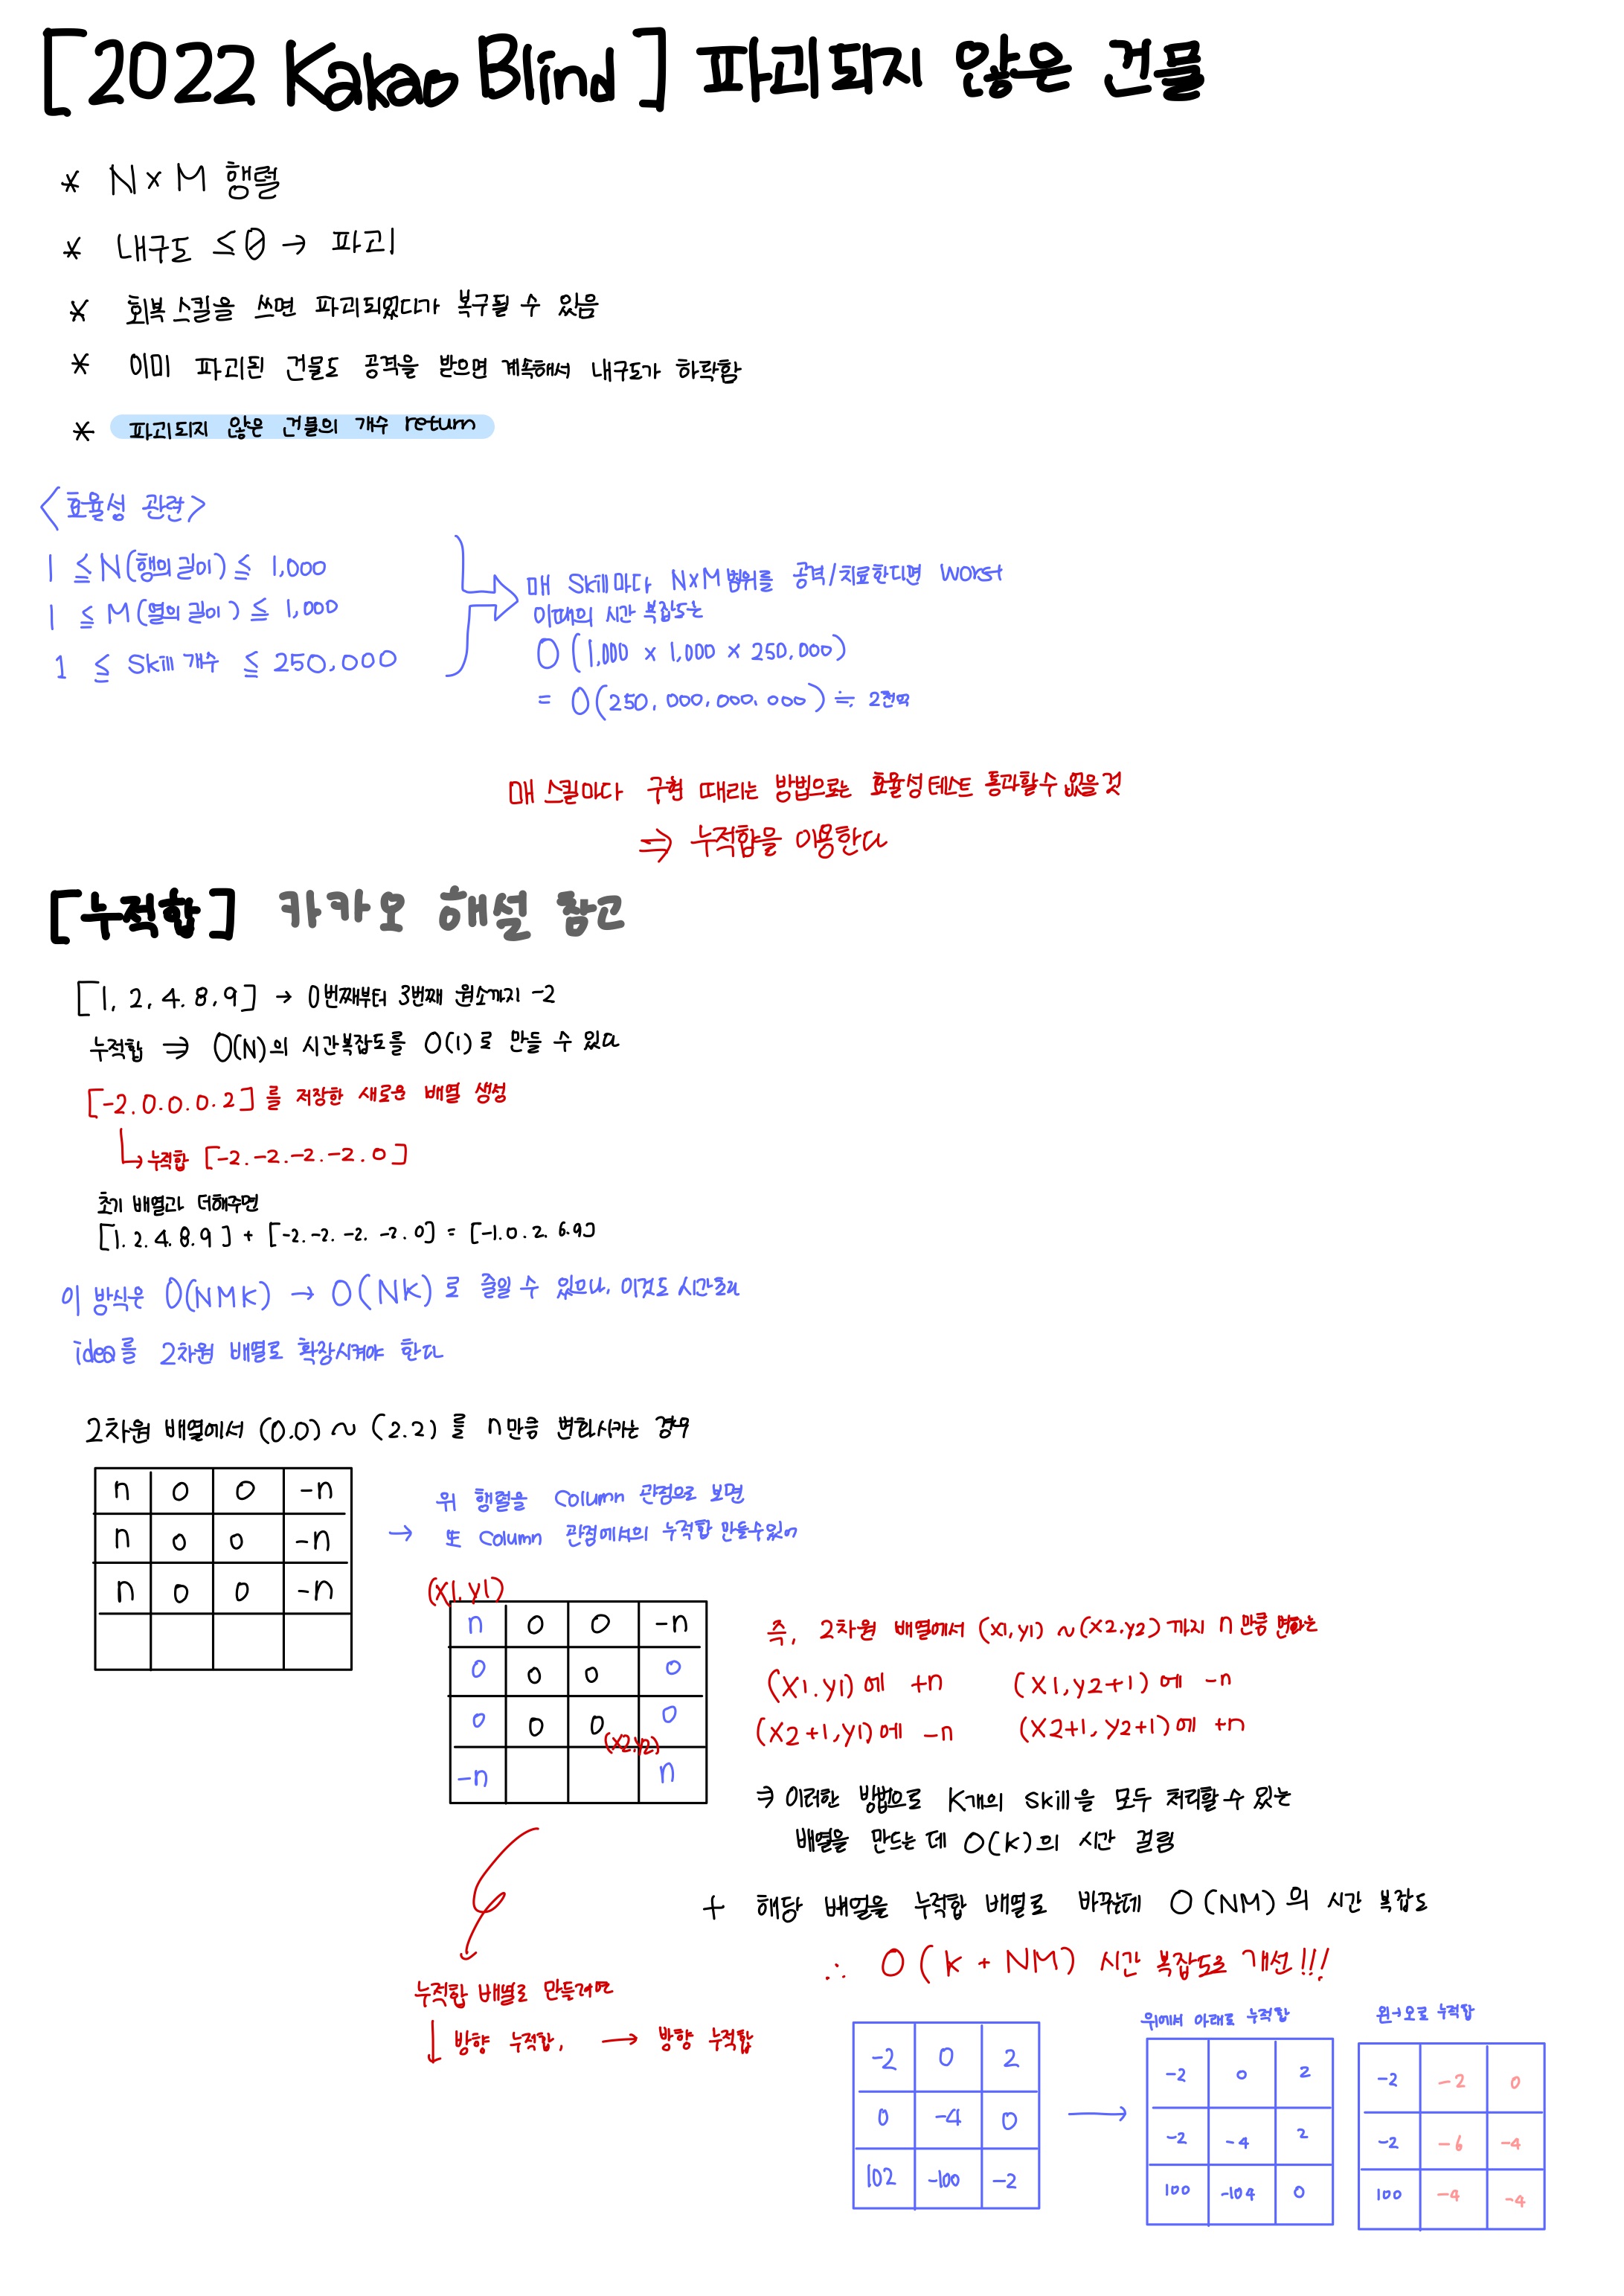 [2022 Kakao Blind] 파괴되지 않은 건물
* N×M 행렬
* 내구도 ≤0 → 파괴
* 회복스킬을 쓰면 파괴되었다가 복구될 수 있음
* 이미 파괴된 건물도 공격을 받으면 계속해서 내구도가 하락함
* 파괴되지 않은 건물의 개수 return
<효율성 관련>
1 ≦ N(행의 길이) ≦ 1,000
1 ≦ M(열의 길이) ≦ 1,000
1 ≦ Skill 개수 ≦ 250,000
매 Skill마다 N×M 범위를 공격/치료한다면 worst
이때의 시간 복잡도는
O(1,000 × 1,000 × 250,000)
= O(250,000,000,000) ≒ 2천억
매 스킬마다 구현 때리는 방법으로는 효율성테스트 통과할수 없을 것
⇒ 누적합을 이용한다
[누적합] 카카오 해설 참고
[1, 2, 4. 8, 9] → 0번째부터 3번째 원소까지 -2
누적합 ⇒ O(N)의 시간복잡도를 O(1)로 만들 수 있다
[-2. 0. 0. 0. 2]를 저장한 새로운 배열 생성
↳ 누적합 [-2. -2. -2. -2. 0]
초기 배열과 더해주면
[1. 2. 4. 8. 9] + [-2. -2. -2. -2. 0] = [-1. 0. 2. 6. 9]
이 방식은 O(NMK) → O(NK)로 줄일 수 있으나, 이것도 시간초과
idea를 2차원 배열로 확장시켜야 한다
2차원 배열에서 (0.0) ~ (2.2)를 n만큼 변화시키는 경우
n 0 0 -n
n 0 0 -n
n 0 0 -n
→ 위 행렬을 Column 관점으로 보면
또 Column 관점에서의 누적합 만들수있어
(X1, Y1)
n 0 0 -n
0 0 0 0
0 0 0 0
(X2.Y2)
-n n
즉, 2차원 배열에서 (X1,Y1) ~ (X2,Y2)까지 n만큼 변하는
(X1.Y1)에 +n (X1,Y2+1)에 -n
(X2+1,Y1)에 -n (X2+1, Y2+1)에 +n
⇒ 이러한 방법으로 K개의 Skill을 모두 처리할 수 있는
배열을 만드는 데 O(K)의 시간 걸림
+ 해당 배열을 누적합 배열로 바꾸는데 O(NM)의 시간 복잡도
∴ O(K + NM) 시간 복잡도로 개선!!!
누적합 배열로 만들려면
↓ 방향 누적합, → 방향 누적합
-2 0 2
0 -4 0
102 -100 -2
→
위에서 아래로 누적합
-2 0 2
-2 -4 2
100 -104 0
왼→오로 누적합
-2 -2 0
-2 -6 -4
100 -4 -4